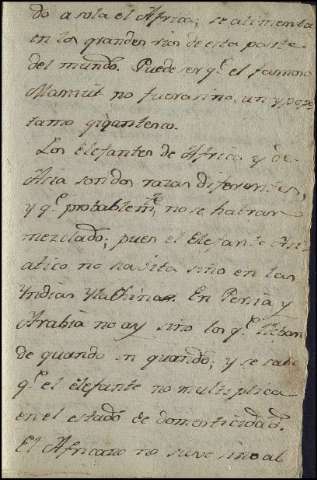 do a sola el Africa; se alimenta
en los grandes rios de esta parte
del mundo. Puede ser q.e el famoso
Mamut no fuera sino un ypopo
tamo gigantesco.
Los elefantes de Africa y de
Asia son dos razas diferentes,
y q.e probablem.te no se habran
mezclado; pues el Elefante Asi
atico no havita sino en las
Yndias y la China. En Persia y
Arabia no ay sino los q.e llevan
de quando en quando; y se sabe
q.e el elefante no multiplica
en el estado de domesticidad.
El Africano no sirve sino al